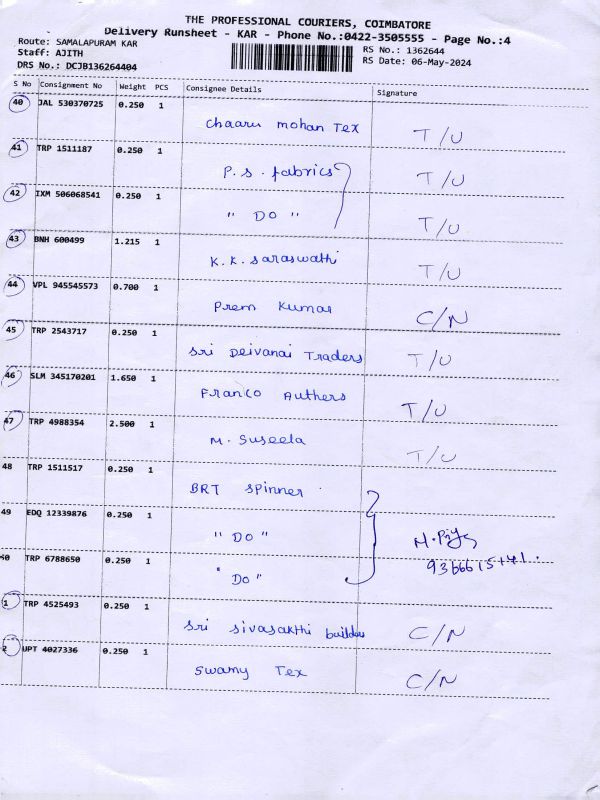 THE PROFESSIONAL COURIERS, COIMBATORE
Delivery Runsheet - KAR - Phone No.:0422-3505555 - Page No.:4
Route: SAMALAPURAM KAR
Staff: AJITH
DRS No.: DCJB136264404
RS No.: 1362644
RS Date: 06-May-2024
S No Consignment No Weight PCS Consignee Details Signature
40 JAL 530370725 0.250 1
Chaaru mohan Tex T/U
41 TRP 1511187 0.250 1
P.S. fabrics T/U
42 IXM 506068541 0.250 1
" DO " T/U
43 BNH 600499 1.215 1
K.K. Saraswathi T/U
44 VPL 945545573 0.700 1
Prem Kumar C/N
45 TRP 2543717 0.250 1
Sri Deivanai Traders T/U
46 SLM 345170201 1.650 1
Franco Authers T/U
47 TRP 4988354 2.500 1
M. Suseela T/U
48 TRP 1511517 0.250 1
BRT Spinner
49 EDQ 12339876 0.250 1
" DO "
50 TRP 6788650 0.250 1
" DO "
1 TRP 4525493 0.250 1
Sri Sivasakthi builder C/N
2 UPT 4027336 0.250 1
Swamy Tex C/N